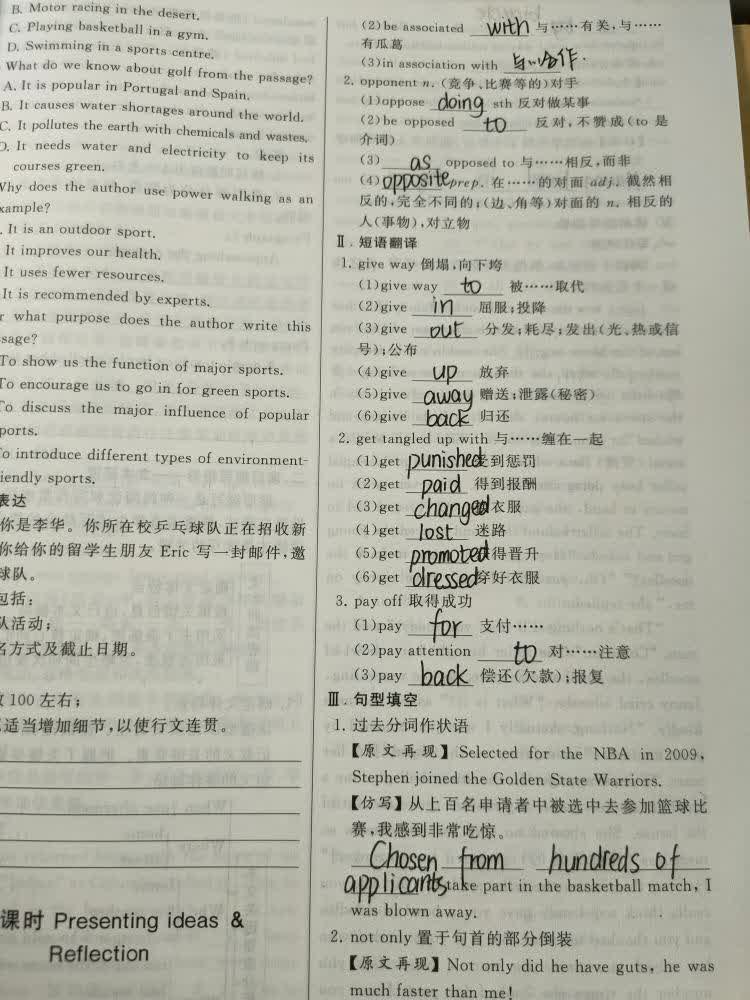 B. Motor racing in the desert.
C. Playing basketball in a gym.
D. Swimming in a sports centre.
What do we know about golf from the passage?
A. It is popular in Portugal and Spain.
B. It causes water shortages around the world.
C. It pollutes the earth with chemicals and wastes.
D. It needs water and electricity to keep its
courses green.
Why does the author use power walking as an
xample?
. It is an outdoor sport.
It improves our health.
It uses fewer resources.
It is recommended by experts.
r what purpose does the author write this
ssage?
To show us the function of major sports.
To encourage us to go in for green sports.
To discuss the major influence of popular
ports.
To introduce different types of environment-
iendly sports.
表达
你是李华。你所在校乒乓球队正在招收新
你给你的留学生朋友 Eric 写一封邮件,邀
球队。
包括:
队活动;
名方式及截止日期。
数 100 左右;
适当增加细节,以使行文连贯。
课时 Presenting ideas &
Reflection
(2)be associated with 与……有关,与……
有瓜葛
(3)in association with 与…合作.
2. opponent n. (竞争、比赛等的)对手
(1)oppose doing sth 反对做某事
(2)be opposed to 反对,不赞成(to 是
介词)
(3) as opposed to 与……相反,而非
(4) opposite prep. 在……的对面 adj. 截然相
反的,完全不同的;(边、角等)对面的 n. 相反的
人(事物),对立物
Ⅱ. 短语翻译
1. give way 倒塌,向下垮
(1)give way to 被……取代
(2)give in 屈服;投降
(3)give out 分发;耗尽;发出(光、热或信
号);公布
(4)give up 放弃
(5)give away 赠送;泄露(秘密)
(6)give back 归还
2. get tangled up with 与……缠在一起
(1)get punished 受到惩罚
(2)get paid 得到报酬
(3)get changed 衣服
(4)get lost 迷路
(5)get promoted 获得晋升
(6)get dressed 穿好衣服
3. pay off 取得成功
(1)pay for 支付……
(2)pay attention to 对……注意
(3)pay back 偿还(欠款);报复
Ⅲ. 句型填空
1. 过去分词作状语
【原文再现】Selected for the NBA in 2009,
Stephen joined the Golden State Warriors.
【仿写】从上百名申请者中被选中去参加篮球比
赛,我感到非常吃惊。
Chosen from hundreds of
applicants take part in the basketball match, I
was blown away.
2. not only 置于句首的部分倒装
【原文再现】Not only did he have guts, he was
much faster than me!